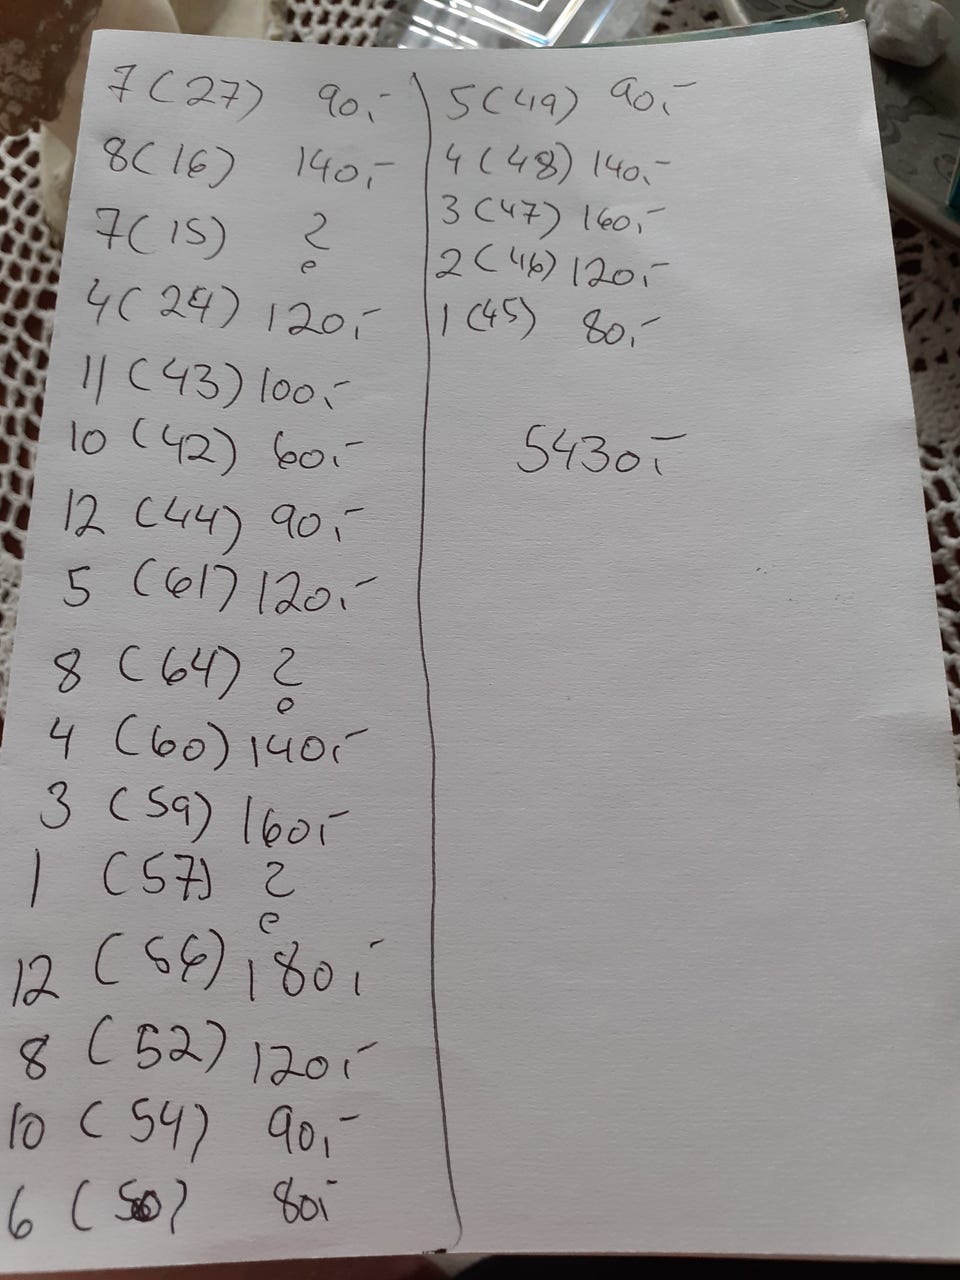 7 (27) 90,-
8 (16) 140,-
7 (15) ?
4 (24) 120,-
11 (43) 100,-
10 (42) 60,-
12 (44) 90,-
5 (61) 120,-
8 (64) ?
4 (60) 140,-
3 (59) 160,-
1 (57) ?
12 (56) 180,-
8 (52) 120,-
10 (54) 90,-
6 (50) 80,-
5 (49) 90,-
4 (48) 140,-
3 (47) 160,-
2 (46) 120,-
1 (45) 80,-
5430,-